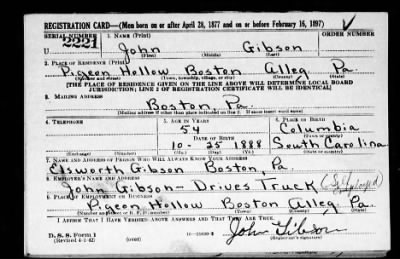 REGISTRATION CARD—(Men born on or after April 28, 1877 and on or before February 16, 1897)
SERIAL NUMBER 1. NAME (Print) ORDER NUMBER
U 2221 John Gibson
(First) (Middle) (Last)
2. PLACE OF RESIDENCE (Print)
Pigeon Hollow Boston Alleg Pa.
(Number and street) (Town, township, village, or city) (County) (State)
[THE PLACE OF RESIDENCE GIVEN ON THE LINE ABOVE WILL DETERMINE LOCAL BOARD
JURISDICTION; LINE 2 OF REGISTRATION CERTIFICATE WILL BE IDENTICAL]
3. MAILING ADDRESS
Boston, Pa.
[Mailing address if other than place indicated on line 2. If same insert word same]
4. TELEPHONE 5. AGE IN YEARS 6. PLACE OF BIRTH
54 Columbia
DATE OF BIRTH (Town or county)
10- 25 1888 South Carolina
(Exchange) (Number) (Mo.) (Day) (Yr.) (State or country)
7. NAME AND ADDRESS OF PERSON WHO WILL ALWAYS KNOW YOUR ADDRESS
Elsworth Gibson Boston, Pa.
8. EMPLOYER'S NAME AND ADDRESS
John Gibson- Drives Truck
9. PLACE OF EMPLOYMENT OR BUSINESS
Pigeon Hollow Boston Alleg Pa.
(Number and street or R. F. D. number) (Town) (County) (State)
I AFFIRM THAT I HAVE VERIFIED ABOVE ANSWERS AND THAT THEY ARE TRUE.
D. S. S. Form 1
(Revised 4-1-42) (over) John Gibson
(Registrant's signature)